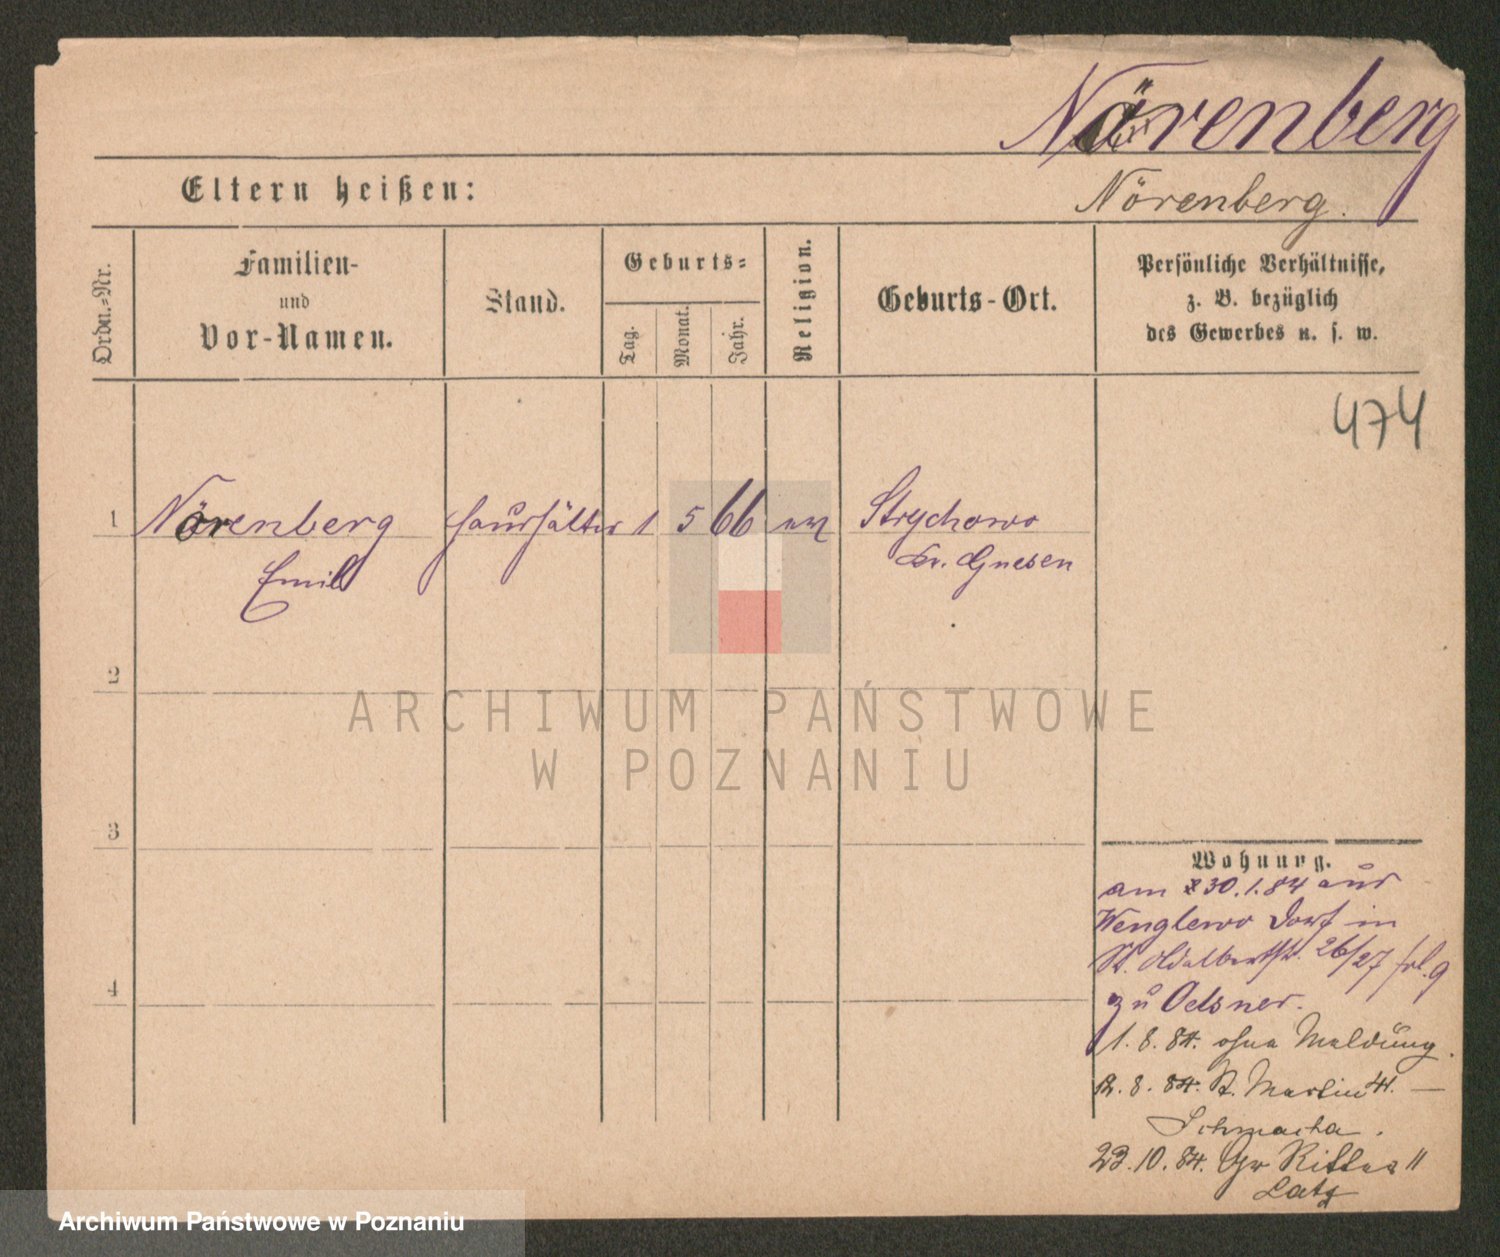 Nörenberg
Eltern heißen:
Nörenberg.
Ordn.=Nr.
Familien-
und
Vor-Namen.
Stand.
Geburts=
Tag.
Monat.
Jahr.
Religion.
Geburts-Ort.
Persönliche Verhältnisse,
z. B. bezüglich
des Gewerbes u. s. w.
474
1 Nörenberg Haushälter 1 5 66 ev Strychowo
Emil Kr. Gnesen
2
3
4
ARCHIWUM PAŃSTWOWE
W POZNANIU
Wohnung.
am 30.1.84 aus
Wenglewo Dorf in
St. Adalbertstr. 26/27
zu Oelsner.
1. 8. 84. ohne Meldung.
12. 8. 84. St. Martin 41. —
23. 10. 84. Gr Ritter 11
Archiwum Państwowe w Poznaniu